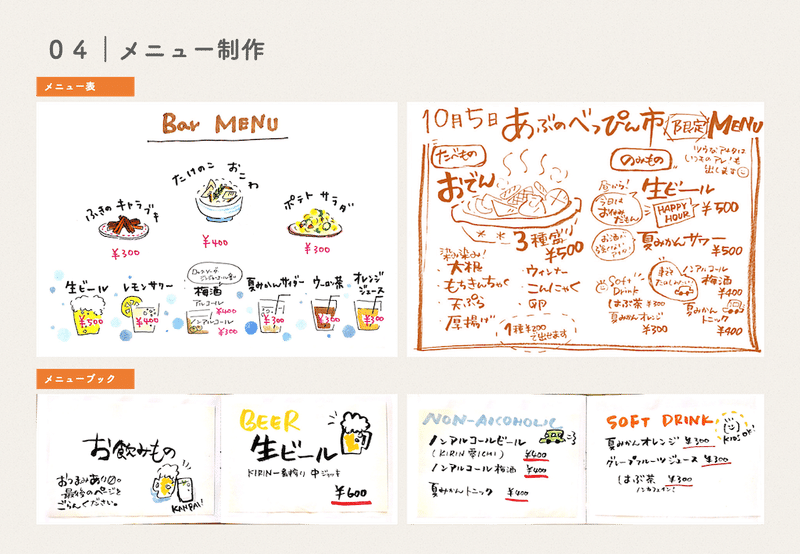 04｜メニュー制作
メニュー表
Bar MENU
ふきのキャラブキ
¥300
たけのこ おこわ
¥400
ポテト サラダ
¥300
生ビール
¥500
レモンサワー
¥400
梅酒
アルコール
¥400
ノンアルコール
¥300
夏みかんサイダー
¥300
ウーロン茶
¥300
オレンジ
ジュース
¥300
10月5日 あぶのべっぴん市 1日限定 MENU
たべもの
おでん
3種盛り
¥500
大根
もちきんちゃく
天ぷら
厚揚げ
ウィンナー
こんにゃく
卵
1種¥200
で出せます
のみもの
生ビール
HAPPY
HOUR
¥500
夏みかんサワー
¥500
ノンアルコール
梅酒
¥400
夏みかん
トニック
¥400
Soft
Drink
はぶ茶 ¥300
夏みかんオレンジ
¥300
メニューブック
お飲みもの
おつまみあり〼。
最後のページを
ごらんください。
KANPAI!
BEER
生ビール
KIRIN一番搾り 中ジョッキ
¥600
NON-ALCOHOLIC
ノンアルコールビール
(KIRIN 零ICHI)
¥400
ノンアルコール梅酒
¥400
夏みかんトニック
¥400
SOFT DRINK
KIDS OK!
夏みかんオレンジ ¥300
グレープフルーツジュース ¥300
はぶ茶 ¥300
ノンカフェイン!